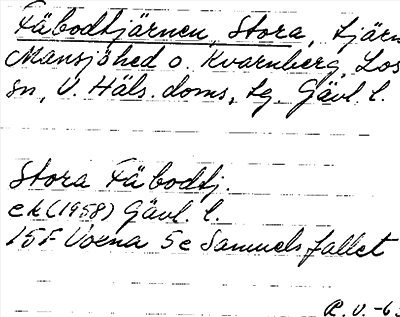 Fäbodtjärnen, Stora, tjärn
Mansjöhed o. Kvarnberg, Los
sn, V. Häls. doms, tg. Gävl. l.
Stora Fäbodtj.
ek (1958) Gävl. l.
15F Voxna 5e Samuelsfallet
R. V. -63